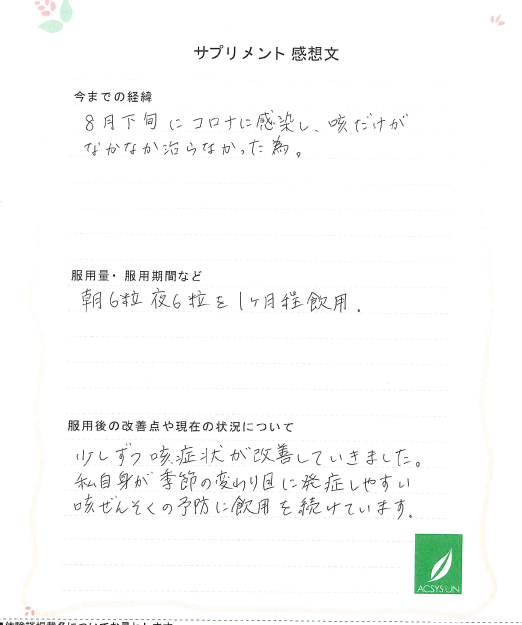 サプリメント 感想文
今までの経緯
8月下旬にコロナに感染し、咳だけが
なかなか治らなかった為。
服用量・服用期間など
朝6粒 夜6粒を1ヶ月程飲用.
服用後の改善点や現在の状況について
少しずつ咳症状が改善していきました。
私自身が季節の変わり目に発症しやすい
咳ぜんそくの予防に飲用を続けています。
ACSYSUN